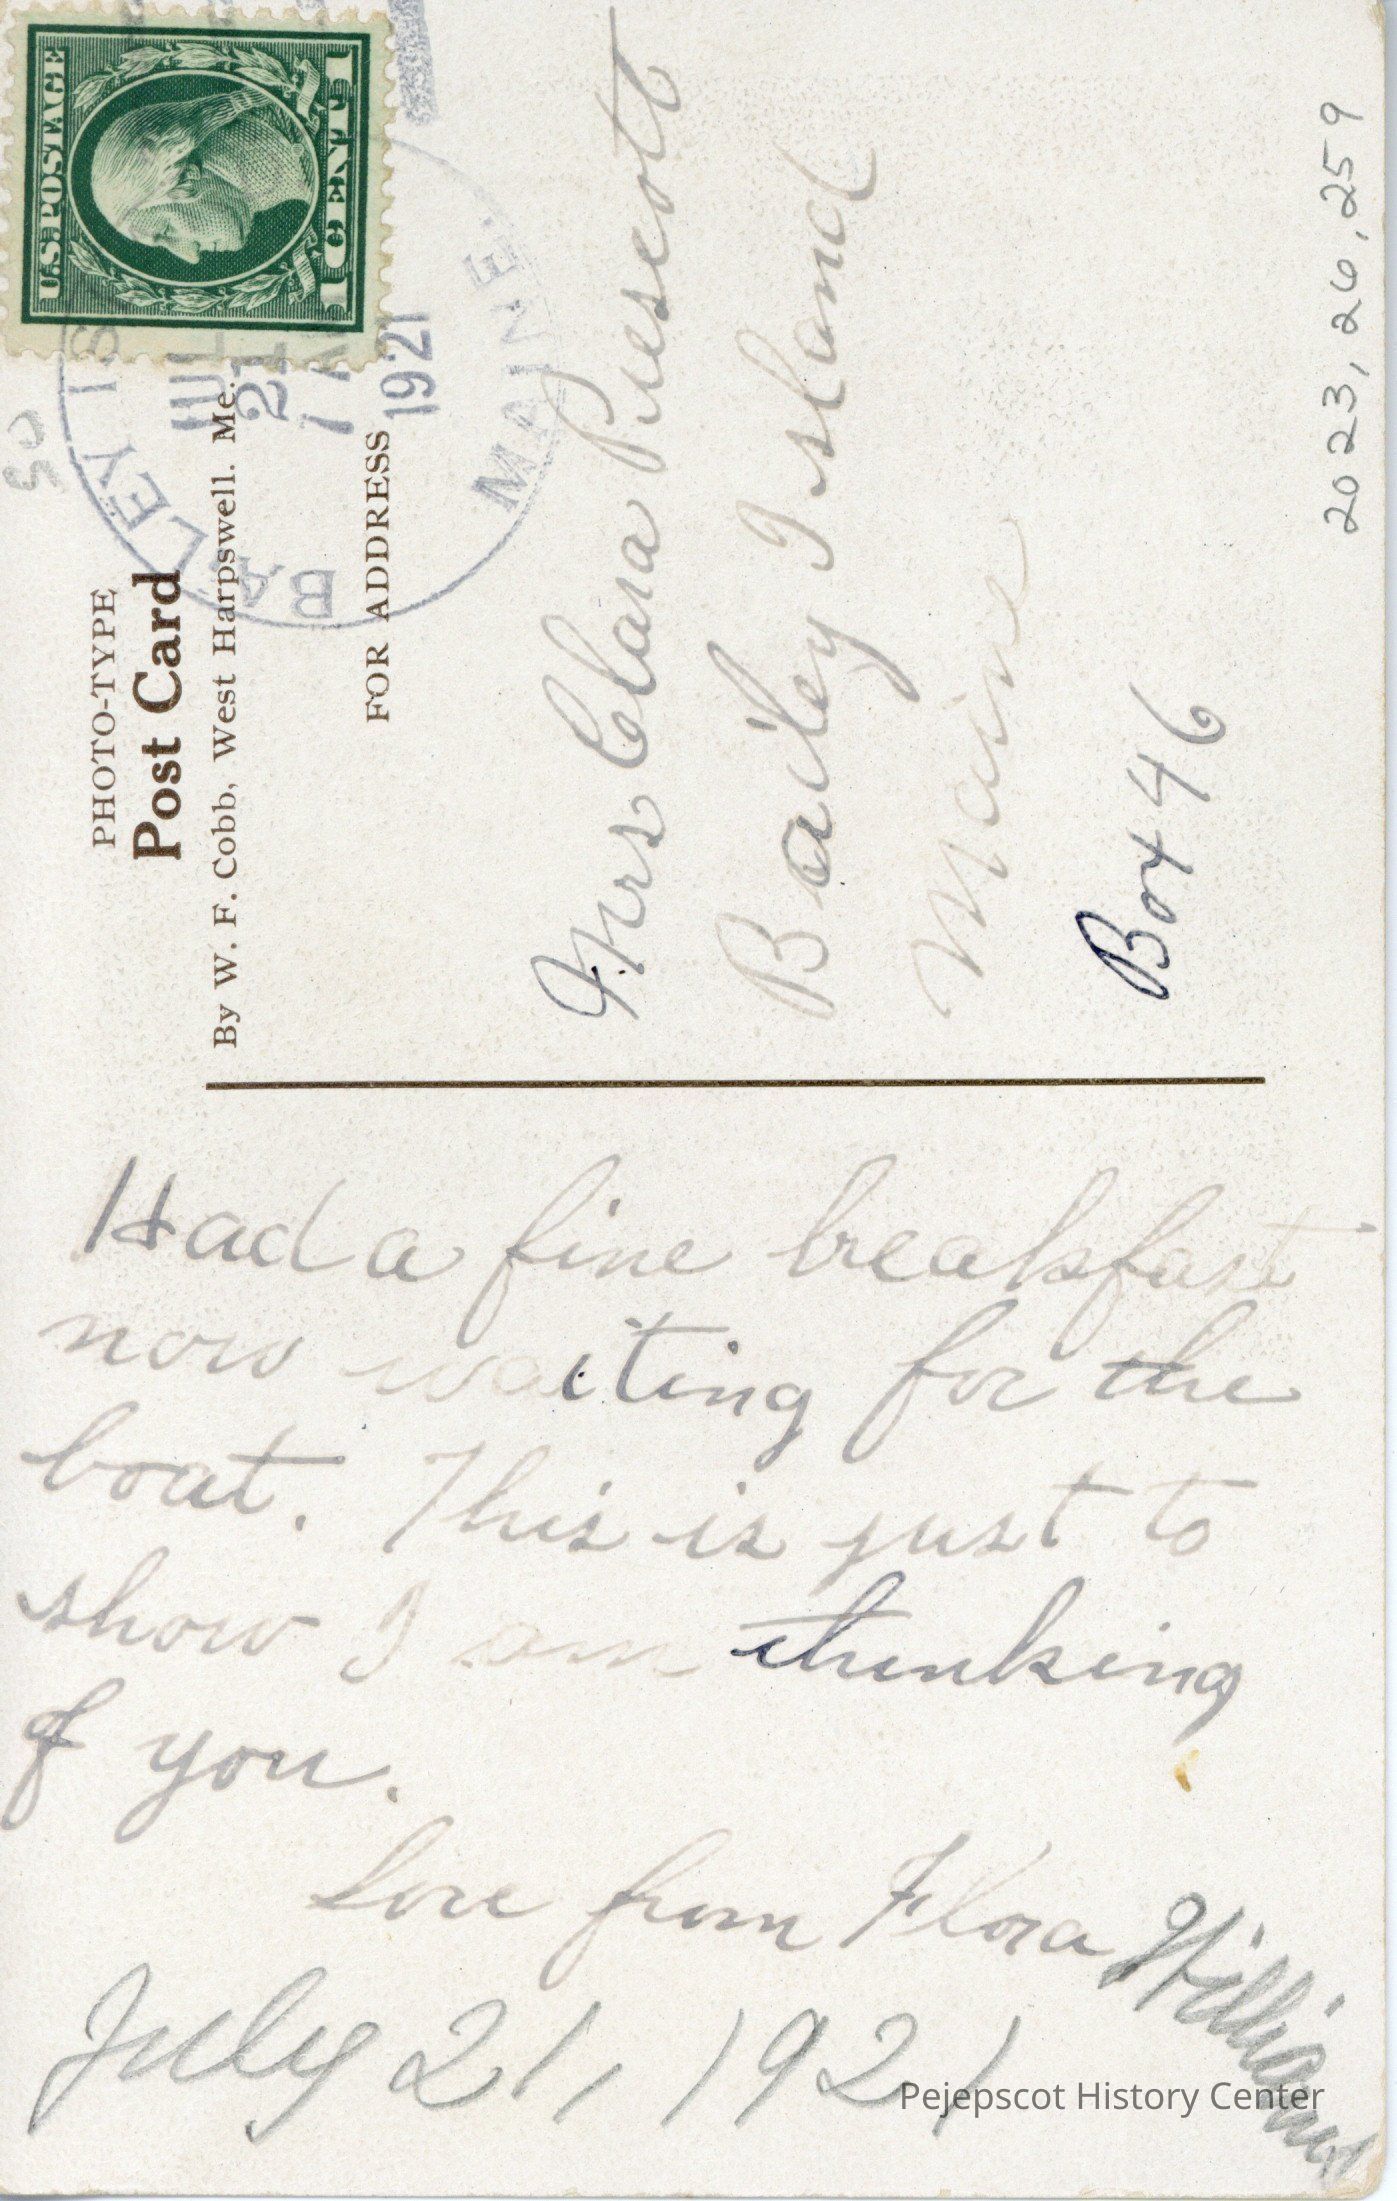 U.S. POSTAGE
1 CENT 1
BAILEY IS
MAINE.
JUL
21
7 A
1921
PHOTO-TYPE
Post Card
By W. F. Cobb, West Harpswell. Me.
FOR ADDRESS
Mrs Clara Prescott
Bailey Island
Maine
Box 46
2023,26,259
Had a fine breakfast
now waiting for the
boat. This is just to
show I am thinking
of you.
Love from Flora
Williams
July 21, 1921
Pejepscot History Center